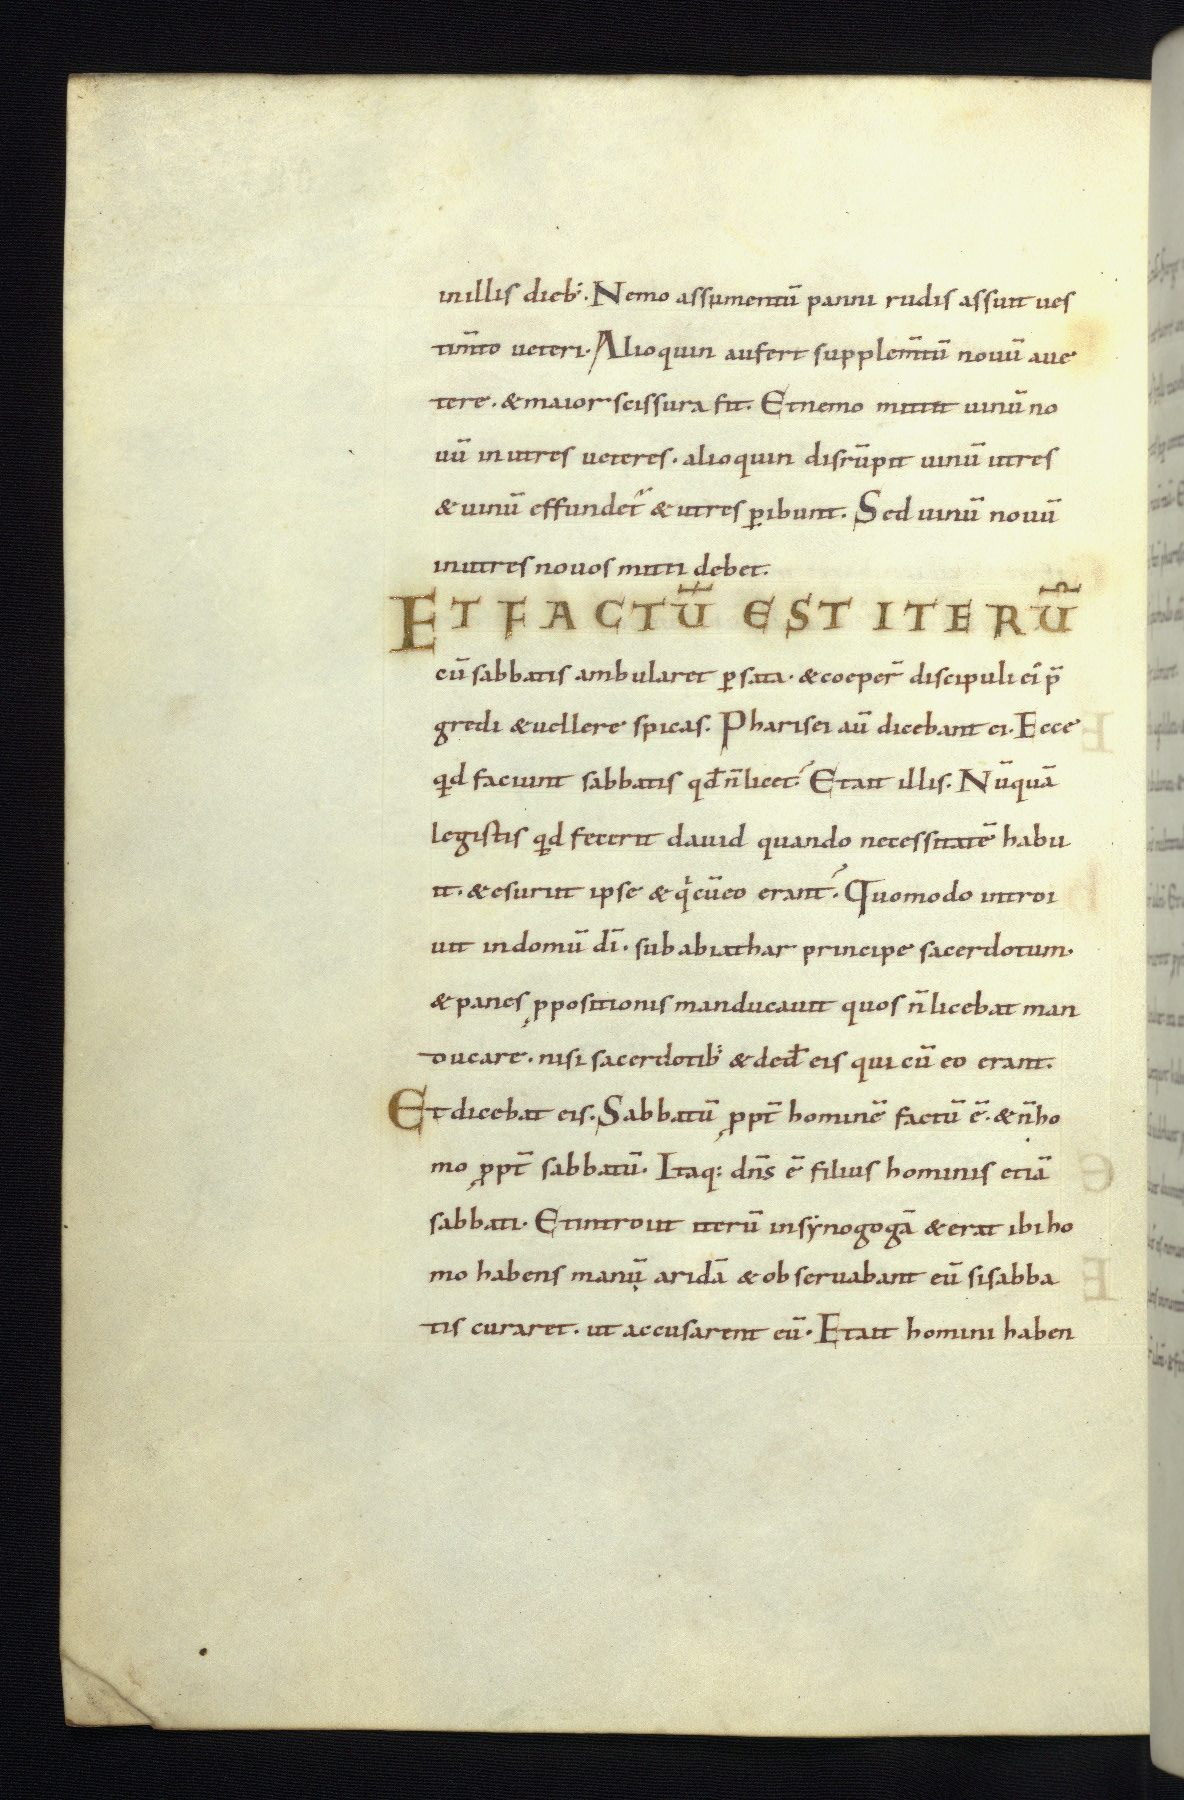 inillis dieb:. Nemo assumentũ panni rudis assuit ues
tim̃to ueteri. Alioquin aufert supplem̃tũ nouũ aue
tere. & maior scissura fit. Et nemo mittit uinũ no
uũ inutres ueteres. alioquin disrũpit uinũ utres
& uinũ effundet̃ & utres ꝑibunt. Sed uinũ nouũ
inutres nouos mitti debet.
ET FACTŨ EST ITERŨ
cũ sabbatis ambularet ꝑ sata. & coeper̃ discipuli ei᷒ p̃
gredi & uellere spicas. Pharisei aũ dicebant ei. Ecce
qͥd faciunt sabbatis qđ ñ licet? Et ait illis. Nũquã
legistis qͥd fecerit dauid quando necessitatẽ habu
it. & esuriit ipse & qͥ cũ eo erant? Quomodo introi
uit in domũ dĩ. sub abiathar principe sacerdotum.
& panes ꝓpositionis manducauit quos ñ licebat man
ducare. nisi sacerdotib: & ded̃ eis qui cũ eo erant.
Et dicebat eis. Sabbatũ ꝓpt̃ hominẽ factũ ẽ. & ñ ho
mo ꝓpt̃ sabbatũ. Itaq: dñs ẽ filius hominis etiã
sabbati. Et introiit iterũ in sẏnogogã & erat ibi ho
mo habens manũ aridã & obseruabant eũ si sabba
tis curaret. ut accusarent eũ. Et ait homini haben